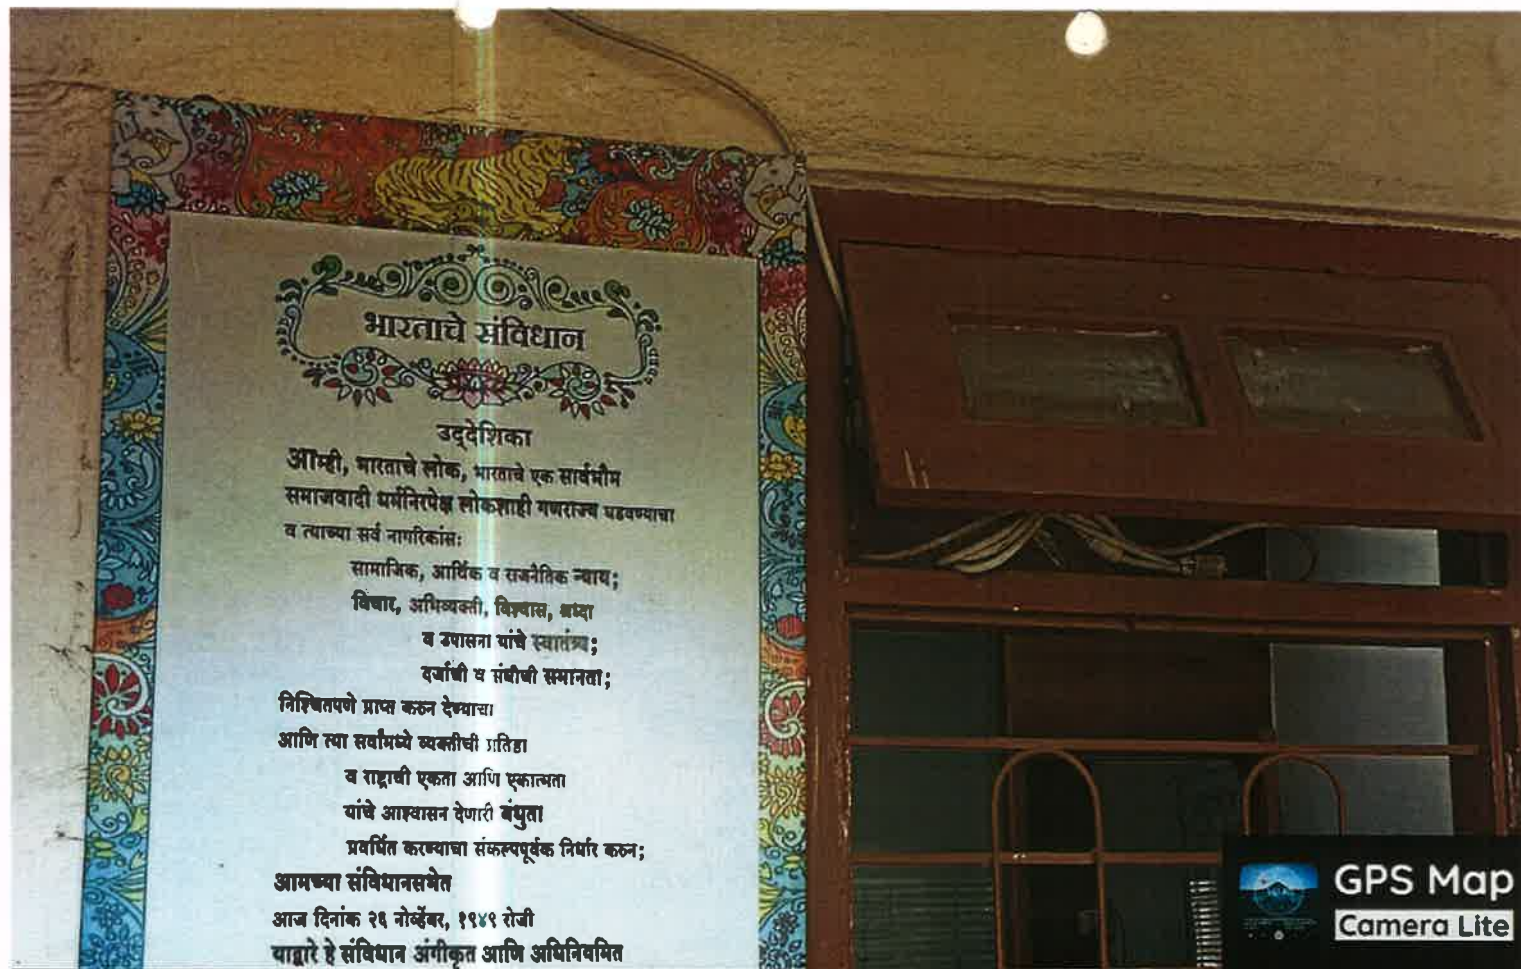 भारताचे संविधान
उद्देशिका
आम्ही, भारताचे लोक, भारताचे एक सार्वभौम
समाजवादी धर्मनिरपेक्ष लोकशाही गणराज्य घडवण्याचा
व त्याच्या सर्व नागरिकांस:
सामाजिक, आर्थिक व राजनैतिक न्याय;
विचार, अभिव्यक्ती, विश्वास, श्रध्दा
व उपासना यांचे स्वातंत्र्य;
दर्जाची व संधीची समानता;
निश्चितपणे प्राप्त करुन देण्याचा
आणि त्या सर्वांमध्ये व्यक्तीची प्रतिष्ठा
व राष्ट्राची एकता आणि एकात्मता
यांचे आश्वासन देणारी बंधुता
प्रवर्धित करण्याचा संकल्पपूर्वक निर्धार करुन;
आमच्या संविधानसभेत
आज दिनांक २६ नोव्हेंबर, १९४९ रोजी
याद्वारे हे संविधान अंगीकृत आणि अधिनियमित
GPS Map
Camera Lite